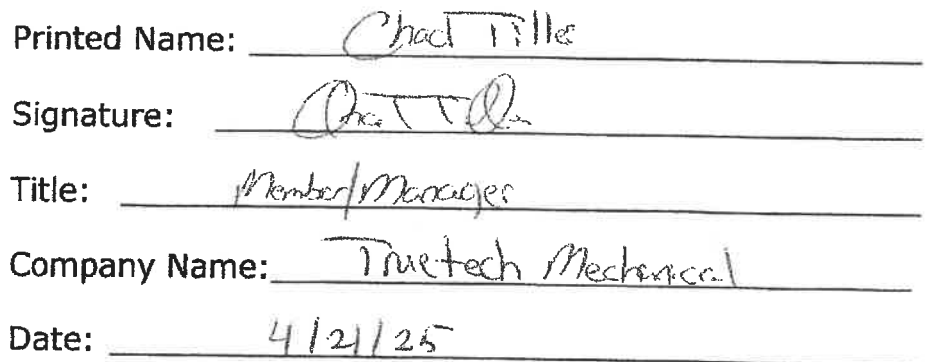 Printed Name: Chad Tiller
Signature: Chad Tiller
Title: Member/Manager
Company Name: Truetech Mechanical
Date: 4/21/25